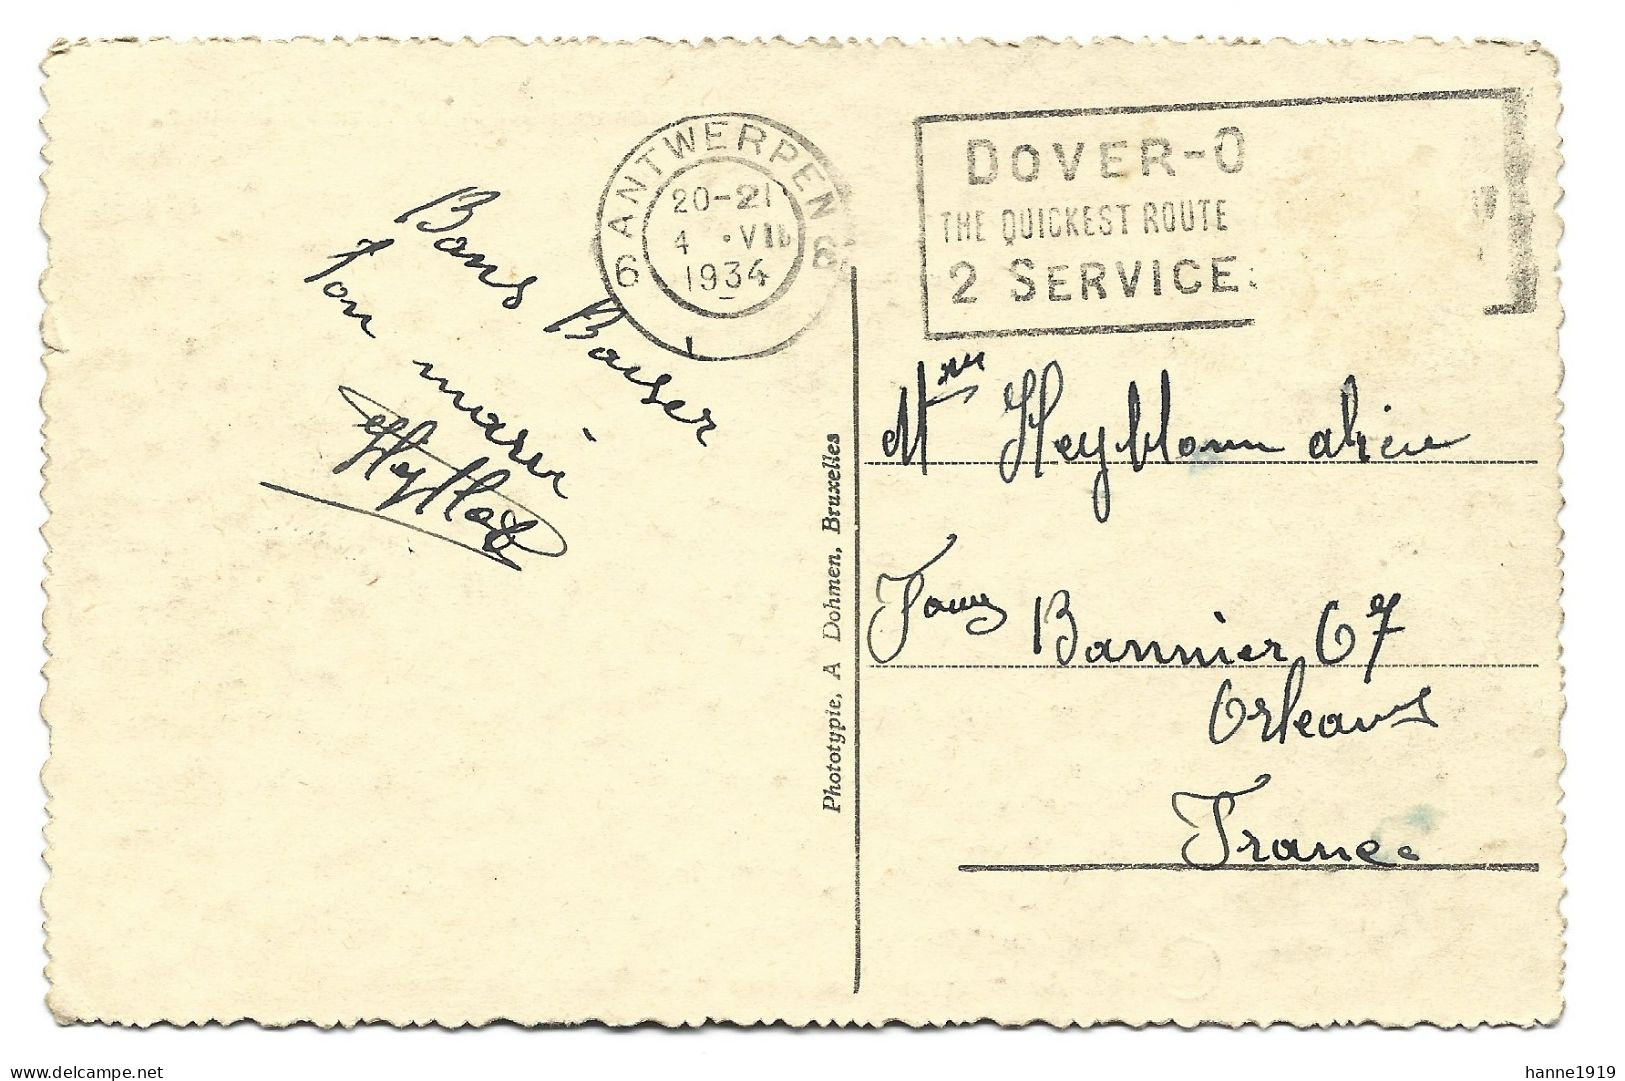 Bons Baiser
Ton mari
6 ANTWERPEN 6
20-21
4 VII
1934
DOVER-O
THE QUICKEST ROUTE
2 SERVICE
Phototypie, A Dohmen, Bruxelles
Mme Heyblom
Faux Bannier 67
Orleans
France
hanne1919